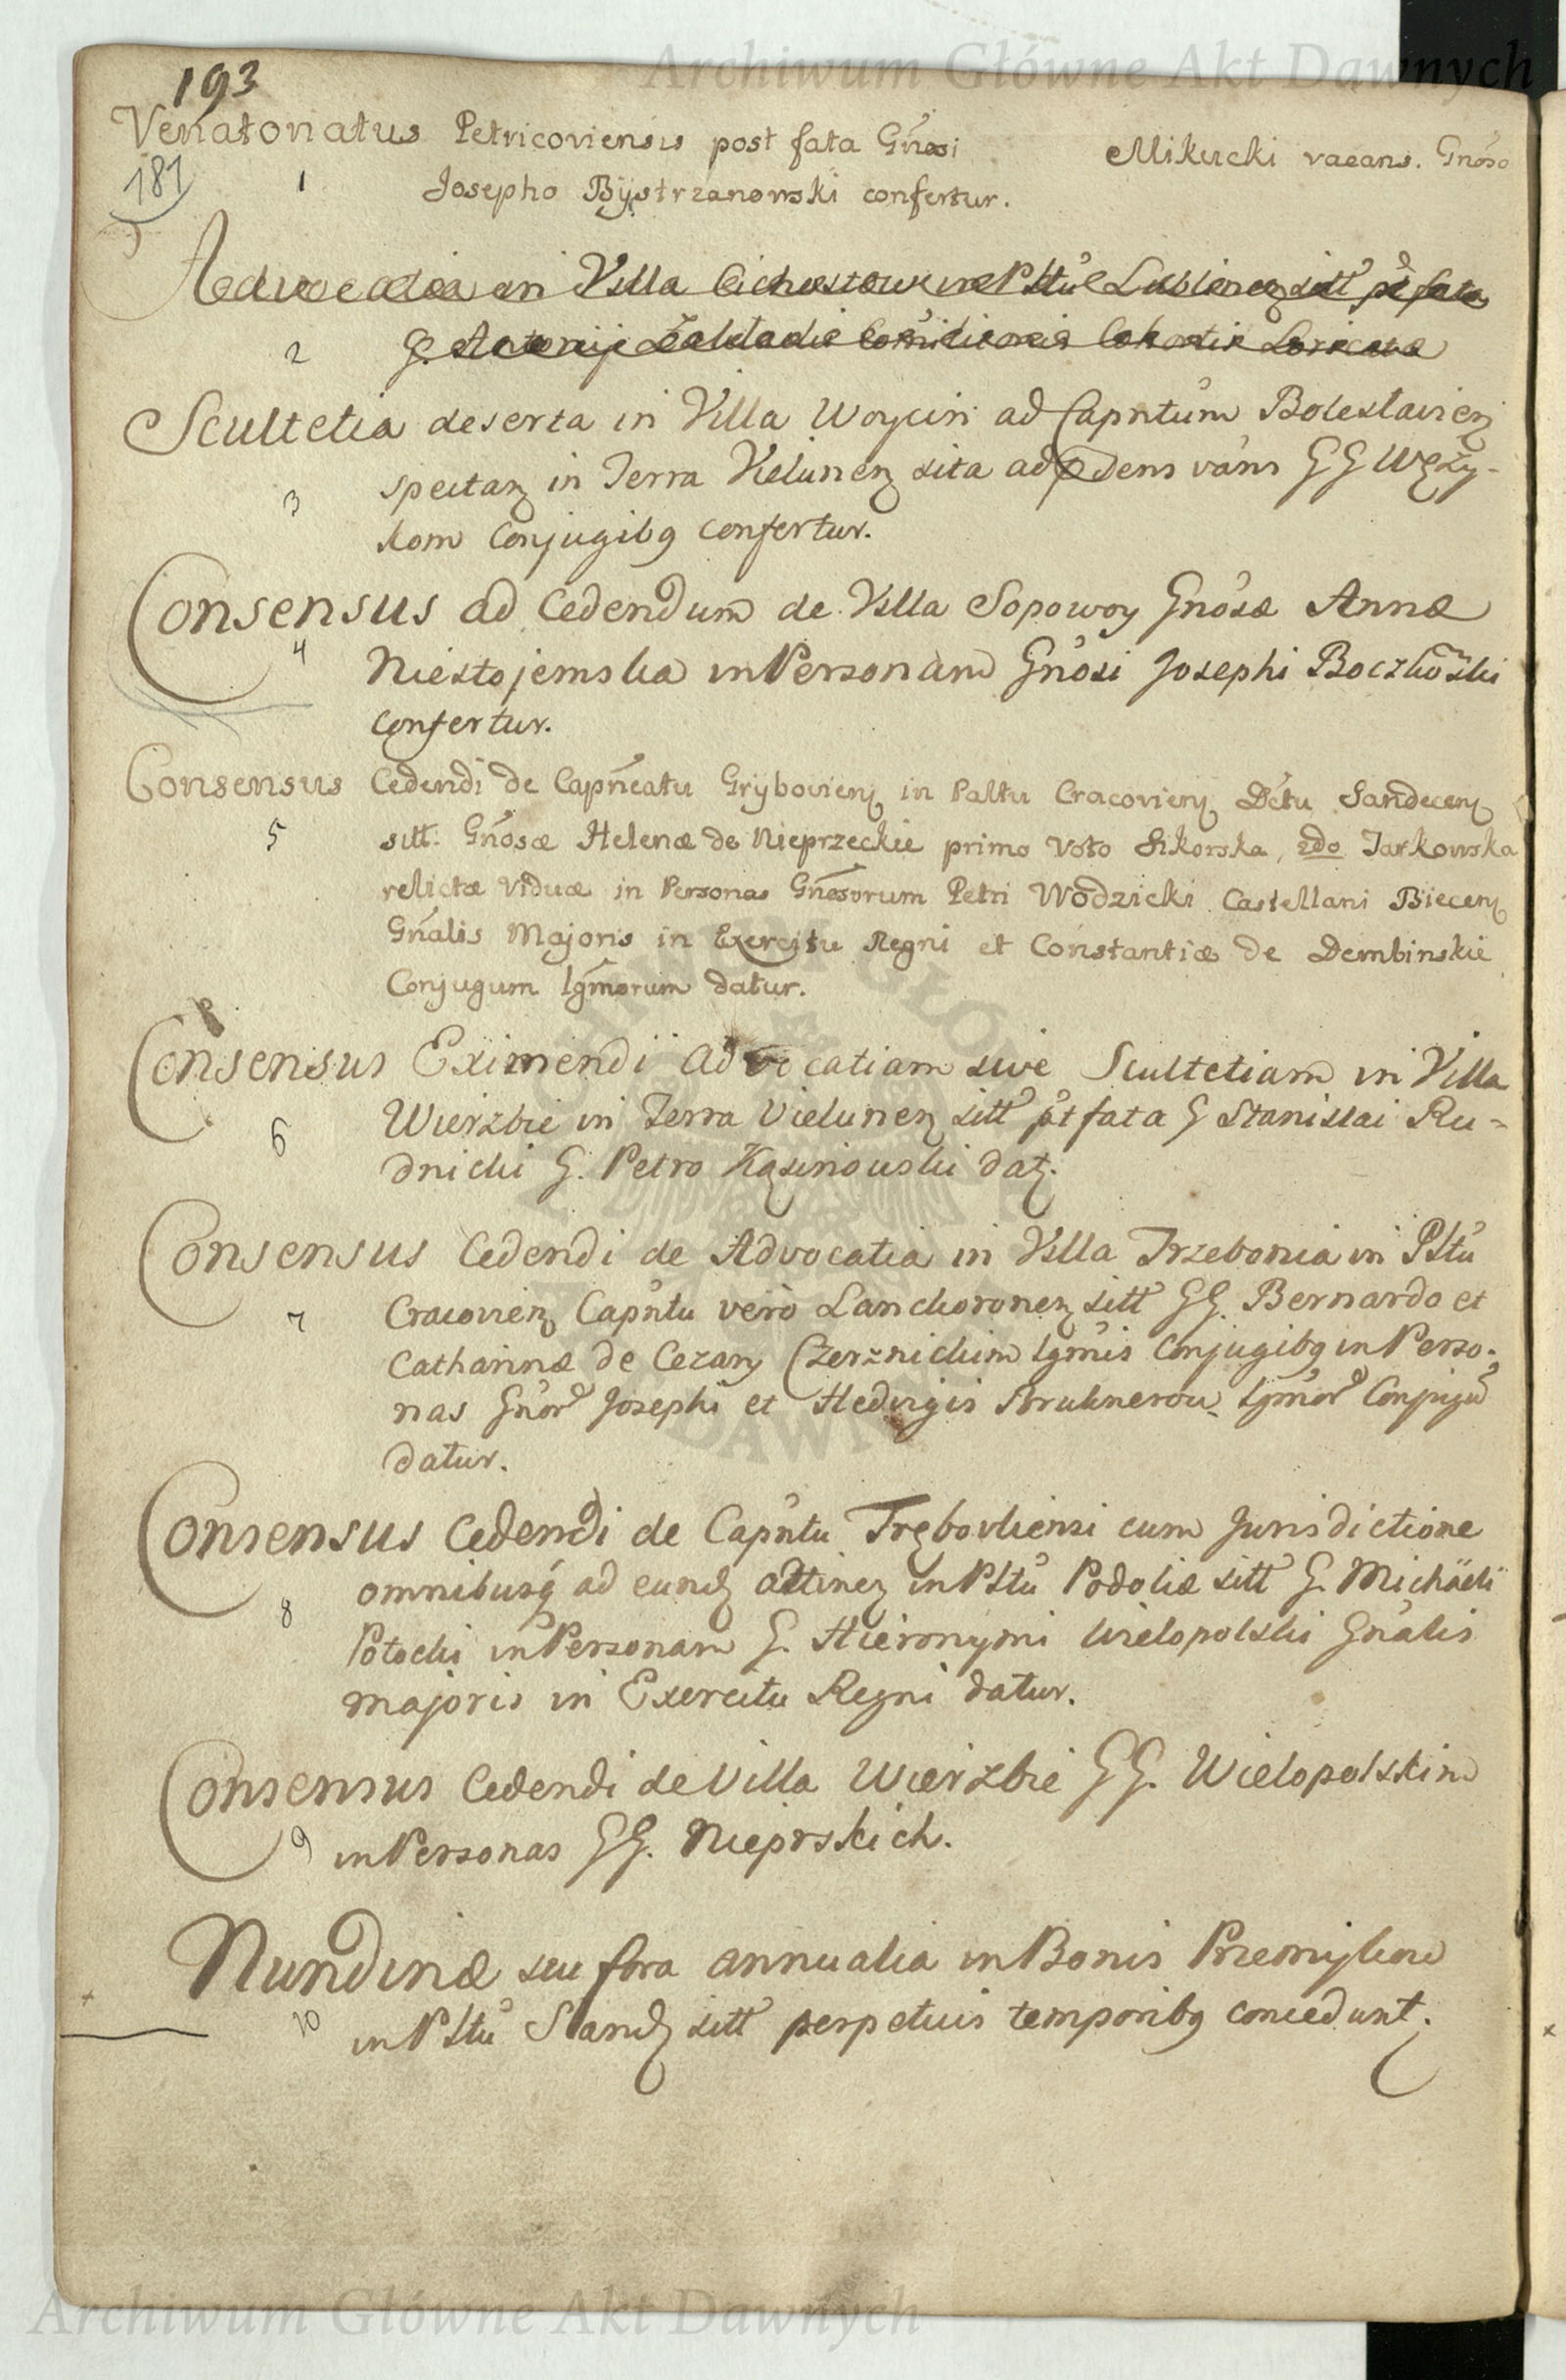 Archiwum Główne Akt Dawnych
193
Venatoriatus Petricoviensis post fata Gnosi Mikucki vacans. Gnoso
181
1 Josepho Bystrzanowski confertur.
Advocatia in Villa Cichostow in Pltu Lublinen sitt pt fata
2 G. Antonij Zakladis Comilitonis Cohortis Loricatæ
Scultetia deserta in Villa Woycin ad Capntum Boleslavien
3 spectan in Terra Vielunen sita ad dens vans GG Węży-
kom Conjugibq confertur.
Consensus ad Cedendum de Villa Sopowoy Gnosæ Annæ
4 Niestojemska in Personam Gnosi Josephi Boczkoski
confertur.
Consensus Cedendi de Capneatu Grybovien in Paltu Cracovien Dctu Sandecen
5 sitt. Gnosæ Helenæ de Nieprzeckie primo Voto Sikorska, 2do Jarkowska
relictæ Viduæ in Personas Gnosorum Petri Wodzicki Castellani Biecen
Gnalis Majoris in Exercitu Regni et Constantiæ de Dembinskie
Conjugum lgmorum datur.
Consensus Eximendi Advocatiam sive Scultetiam in Villa
6 Wierzbie in Terra Vielunen sitt pt fata G Stanislai Ru-
dnicki G. Petro Kąsinouski dat.
Consensus Cedendi de Advocatia in Villa Trzebonia in Pltu
7 Cracovien Capntu vero Lanckoronen sitt GG. Bernardo et
Catharinæ de Cezary Czerznickim lgmis Conjugibq in Perso-
nas Gnor Josephi et Hedvigis Bruknerow lgmor Conjugu
datur.
Consensus Cedendi de Capntu Trębovliensi cum Jurisdictione
8 omnibusq ad eund attinen in Pltu Podoliæ sitt G. Michäeli
Potocki in Personam G. Hieronymi Wielopolski Gnalis
majoris in Exercitu Regni datur.
Consensus Cedendi de Villa Wierzbie GG. Wielopolskim
9 in Personas GG. Nieprskich.
Nundinæ seu fora annualia in Bonis Przemyków
10 in Pltu Sand sitt perpetuis temporibq concedunt.
Archiwum Główne Akt Dawnych